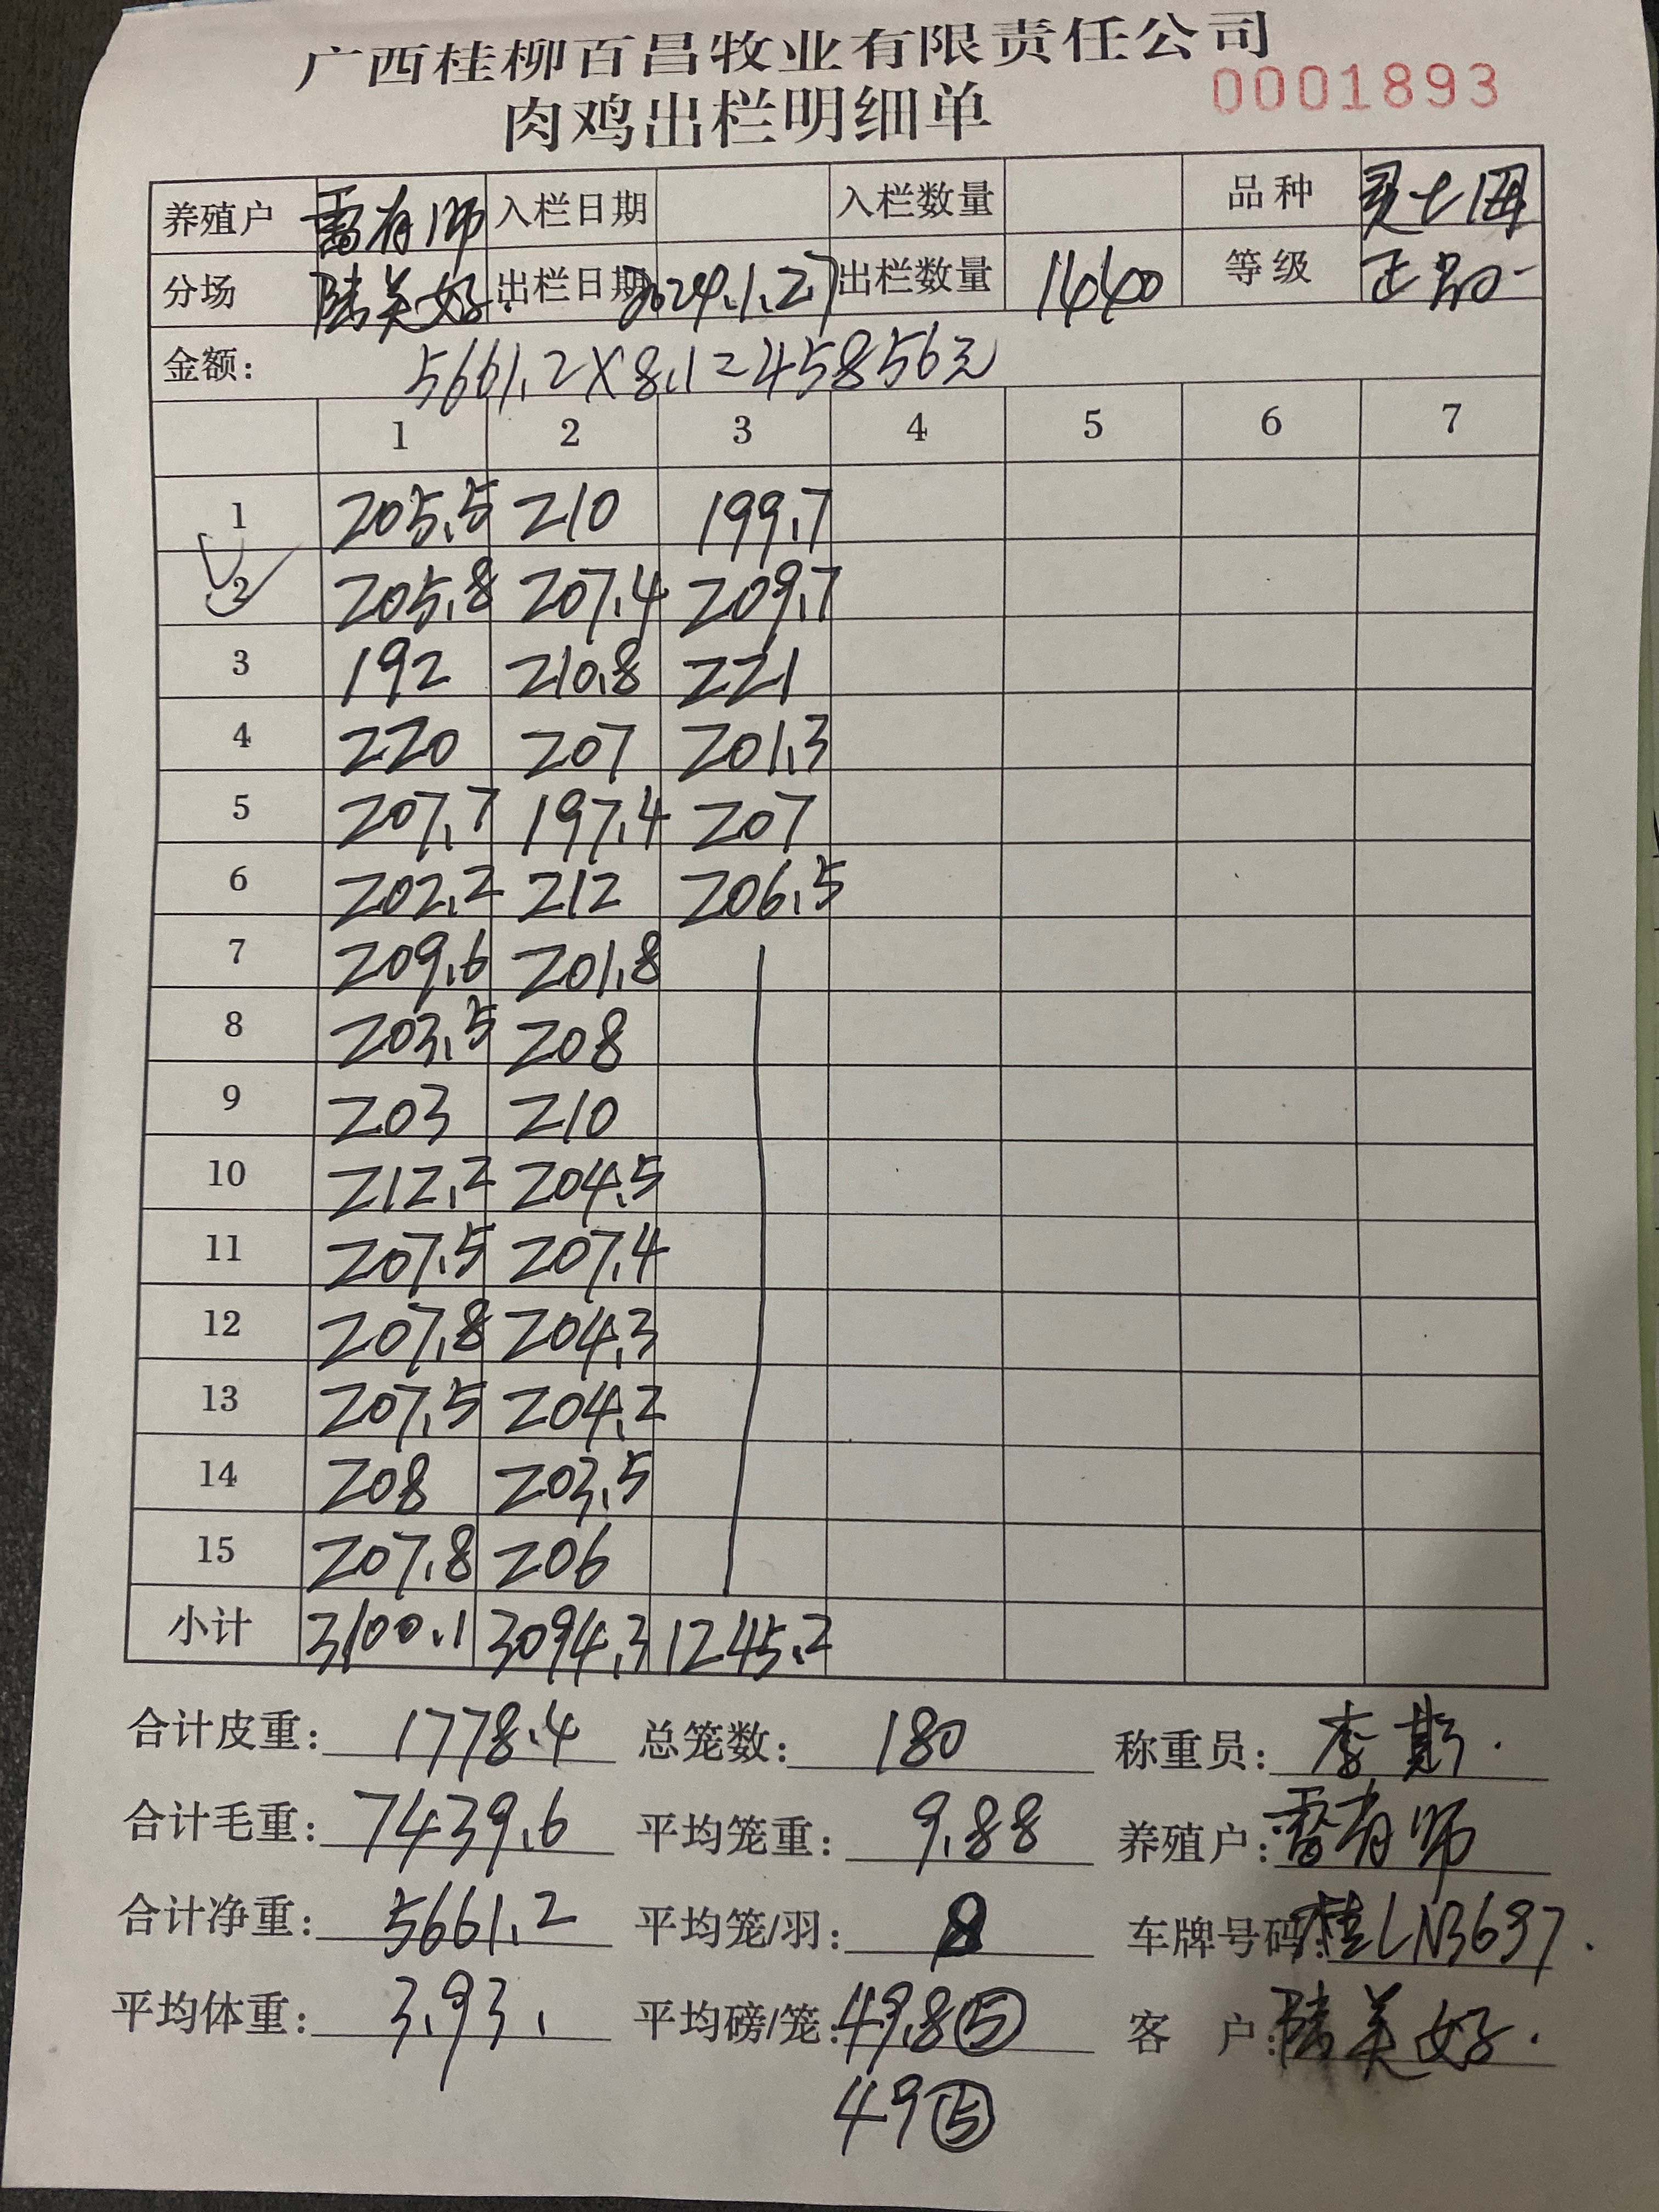 广西桂柳百昌牧业有限责任公司
肉鸡出栏明细单 0001893
养殖户 雷有师 入栏日期 入栏数量 品种 灵七
分场 陆美好 出栏日期 2024.1.27 出栏数量 1440 等级 正品一
金额: 5661.2×8.1=45856元
1 2 3 4 5 6 7
1 205.5 210 199.7
2 205.8 207.4 209.7
3 192 210.8 221
4 220 207 201.3
5 207.7 197.4 207
6 202.2 212 206.5
7 209.6 201.8
8 203.5 208
9 203 210
10 212.2 204.5
11 207.5 207.4
12 207.8 204.3
13 207.5 204.2
14 208 203.5
15 207.8 206
小计 3100.1 3094.3 1245.2
合计皮重: 1778.4 总笼数: 180 称重员: 李斯.
合计毛重: 7439.6 平均笼重: 9.88 养殖户: 雷有师
合计净重: 5661.2 平均笼/羽: 8 车牌号码: 桂LN3637.
平均体重: 3.93. 平均磅/笼: 49.8⑤ 客 户: 陆美好.
49⑤